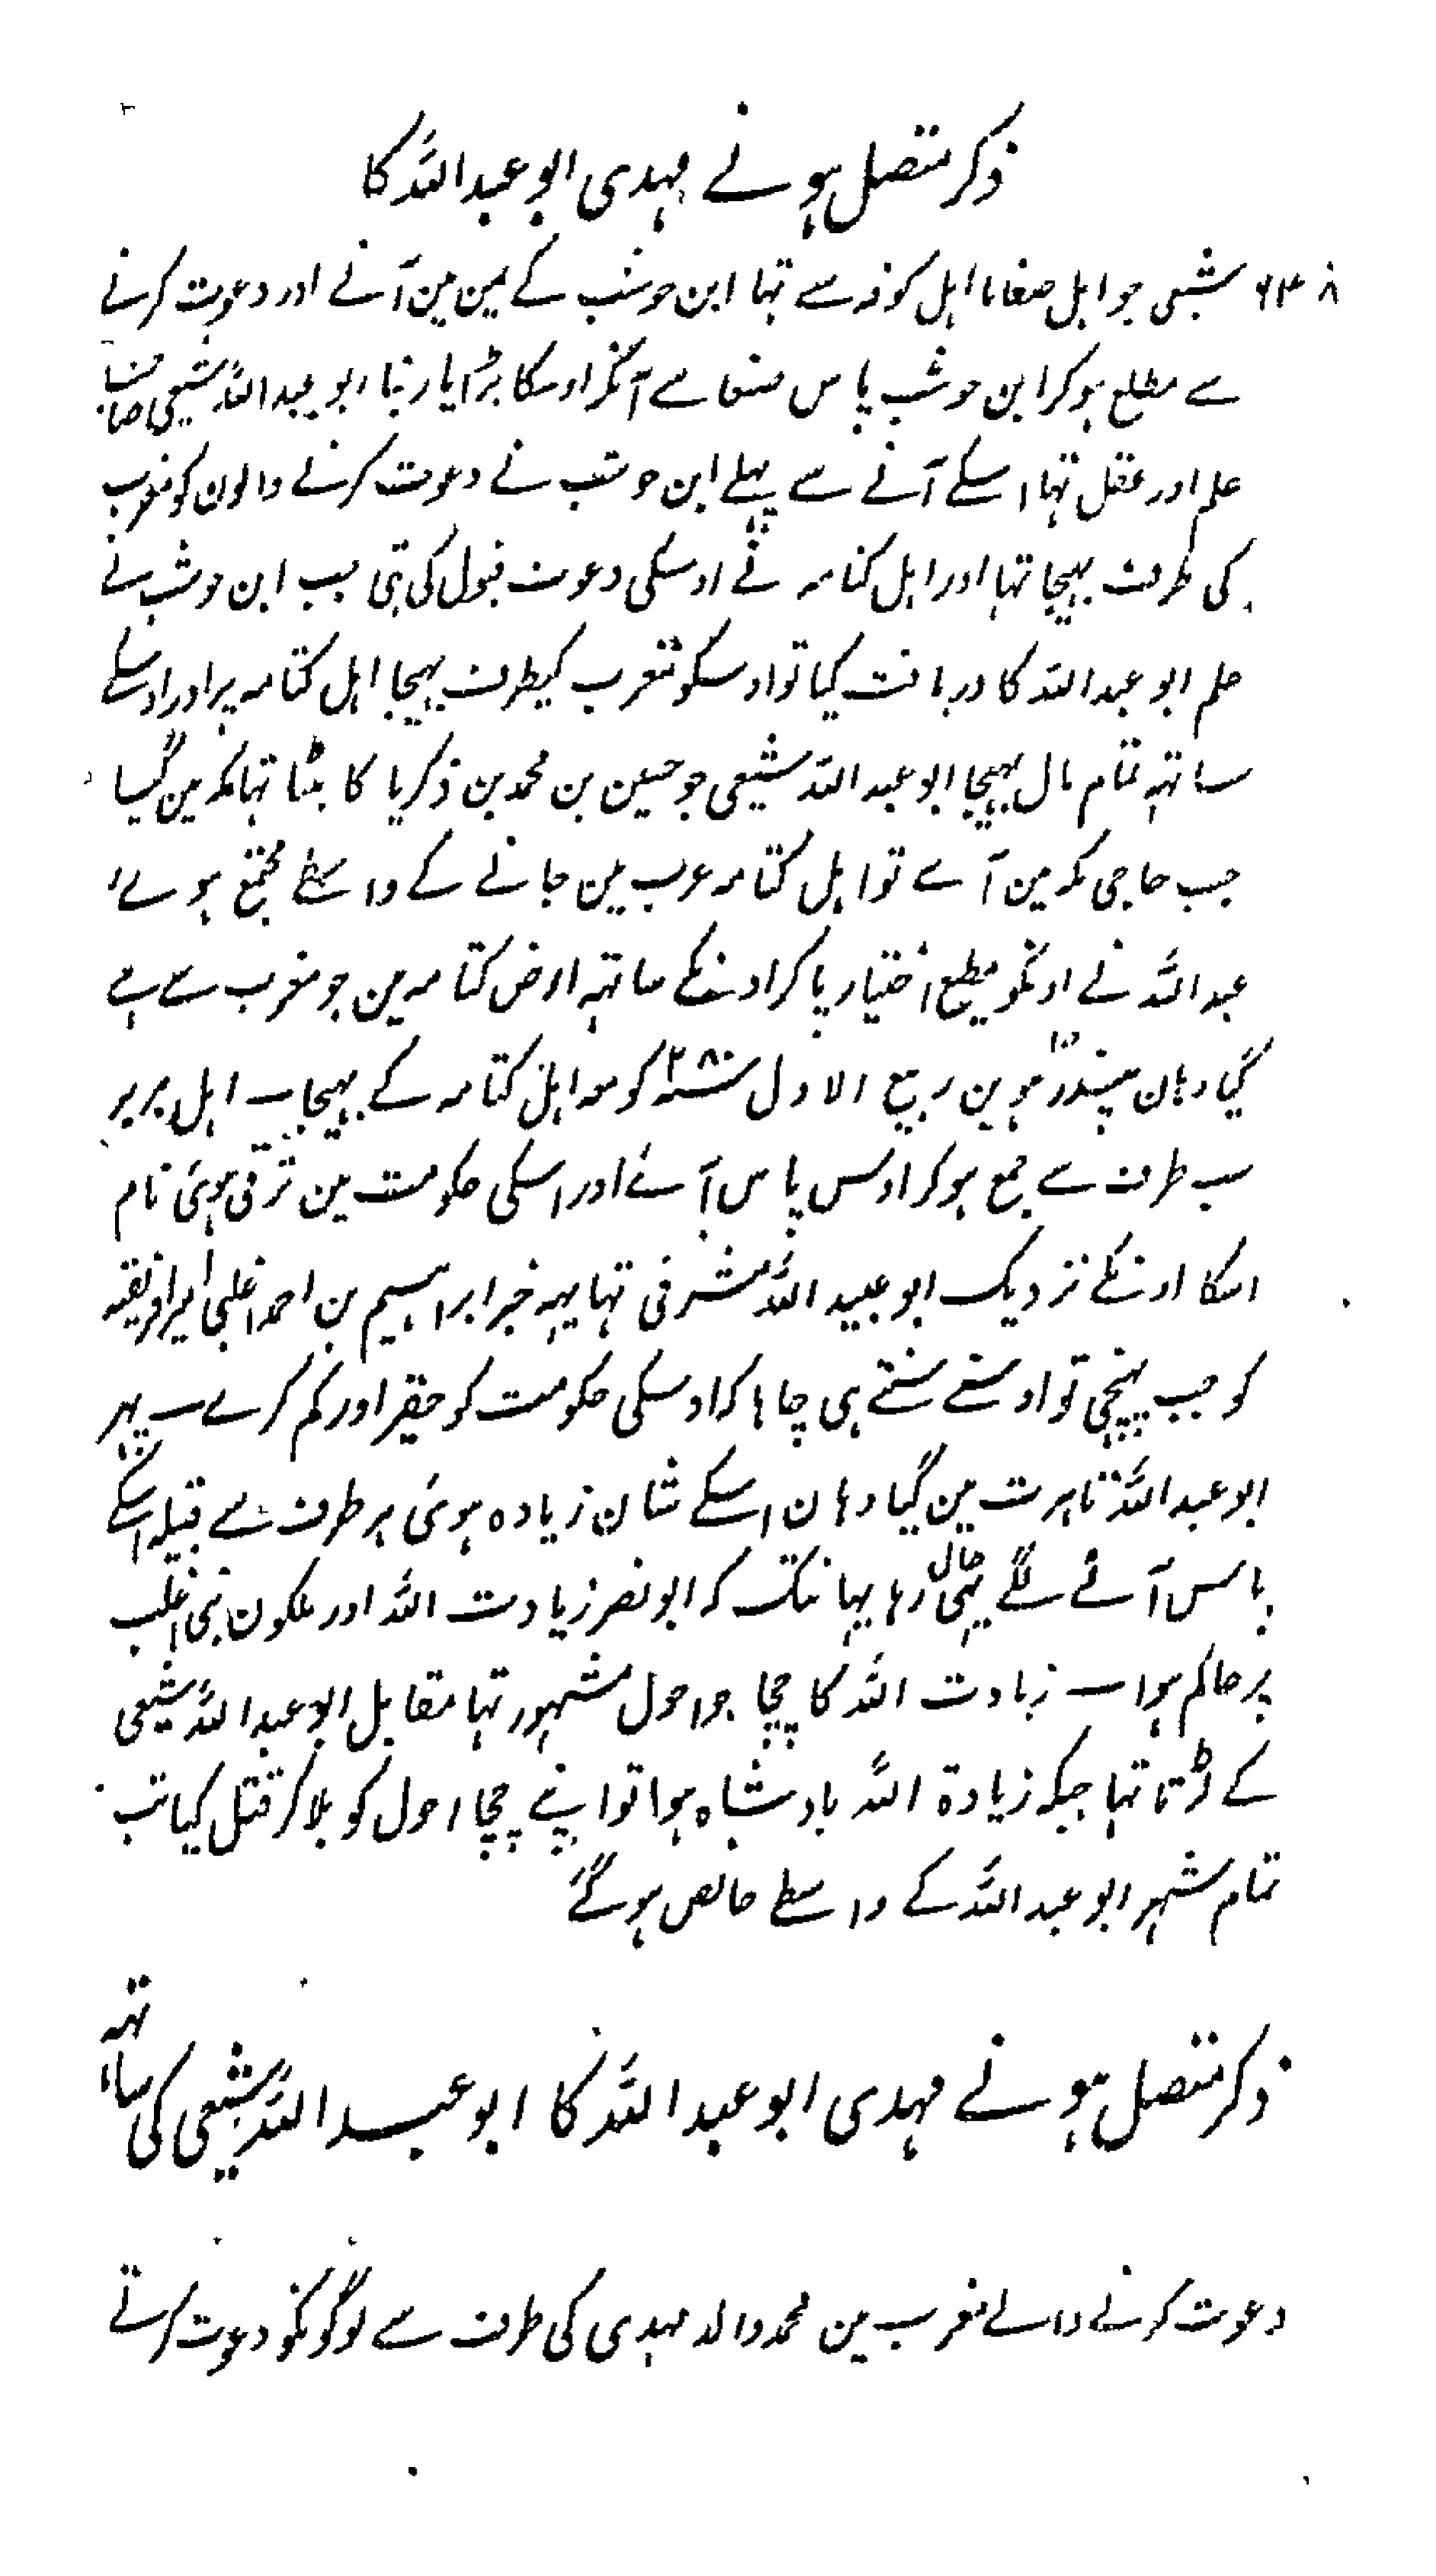 ذکر متصل ہونے مہدی ابو عبداللہ کا
۶۳۸ شیعی جو اہل صنعا یا اہل کوفہ سے تہا ابن حوشب کے یمن مین آنے اور دعوت کرنے
سے مطلع ہوکر ابن حوشب پاس صنعا سے آنکر اوسکا بڑا یار بنا ابو عبداللہ شیعی صاحب
علم اور عقل تہا اسکے آنے سے پہلے ابن حوشب نے دعوت کرنے والون کو مغرب
کی طرف بہیجا تہا اور اہل کتامہ نے اوسکی دعوت قبول کی تہی جب ابن حوشب نے
علم ابو عبداللہ کا دریافت کیا تو اوسکو مغرب کیطرف بہیجا اہل کتامہ پر اور اوسکے
ساتہہ تمام مال بہیجا ابو عبداللہ شیعی جو حسین بن محمد بن ذکریا کا بیٹا تہا مکہ مین گیا
جب حاجی مکہ مین آے تو اہل کتامہ عرب مین جانے کے واسطے مجتمع ہوے
عبداللہ نے اونکو مطیع اختیار پاکر اونکے ساتہہ ارض کتامہ مین جو مغرب سے ہے
گیا وہان پندرہوین ربیع الاول سنہ ۲۸۰ کو مہ اہل کتامہ کے پہیچا ـ اہل بربر
سب طرف سے جمع ہوکر اوس پاس آے اور اسکی حکومت مین ترقی ہوئی نام
اسکا اونکے نزدیک ابو عبید اللہ مشرقی تہا یہہ خبر ابراہیم بن احمد اغلبی امیر افریقیہ
کو جب پہنچی تو اوسنے سنتے ہی چاہا کہ اوسکی حکومت کو حقیر اور کم کرے ـ پہر
ابو عبداللہ تاہرت مین گیا وہان اسکے شان زیادہ ہوئی ہر طرف سے قبیلہ اسکے
پاس آنے لگے یہی حال رہا یہانتک کہ ابو نصر زیادت اللہ اور ملکون بنی اغلب
پر حاکم ہوا ـ زیادت اللہ کا چچا جو احول مشہور تہا مقابل ابو عبداللہ شیعی
کے لڑتا تہا جبکہ زیادۃ اللہ بادشاہ ہوا تو اپنے چچا احول کو بلا کر قتل کیا تب
تمام شہر ابو عبداللہ کے واسطے خالص ہوگے
ذکر متصل ہونے مہدی ابو عبداللہ کا ابو عبداللہ شیعی کی ساتہہ
دعوت کرنے والے مغرب مین محمد والد مہدی کی طرف سے لوگونکو دعوت کرتے